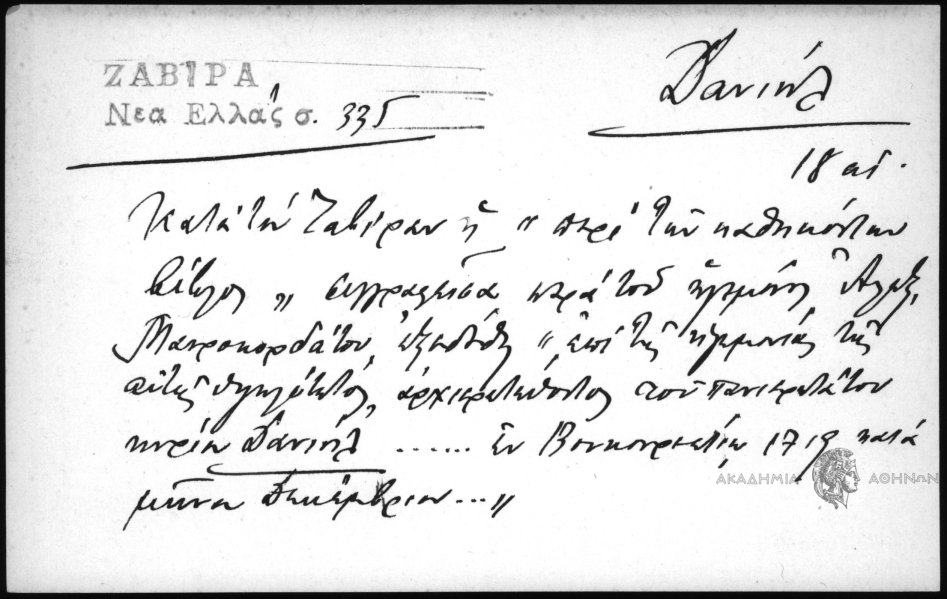 ΖΑΒΙΡΑ
Νεα Ελλάς σ. 335
Δανιήλ
18 αι.
Κατά τὴν Ζαβίραν ἡ „ περὶ τῶν καθηκόντων
βίβλος „ συγγραφεῖσα παρὰ τοῦ ἡγεμόνος Ἀλεξ.
Μαυροκορδάτου, ἐξεδόθη „ ἐπὶ τῆς ἡγεμονίας τῆς
αὐτοῦ ὑψηλότητος, ἀρχιερατεύοντος τοῦ πανιερωτάτου
κυρίου Δανιήλ ...... ἐν Βουκουρεστίῳ 1719 κατὰ
μῆνα Δεκέμβριον ... „
ΑΚΑΔΗΜΙΑ ΑΘΗΝΩΝ